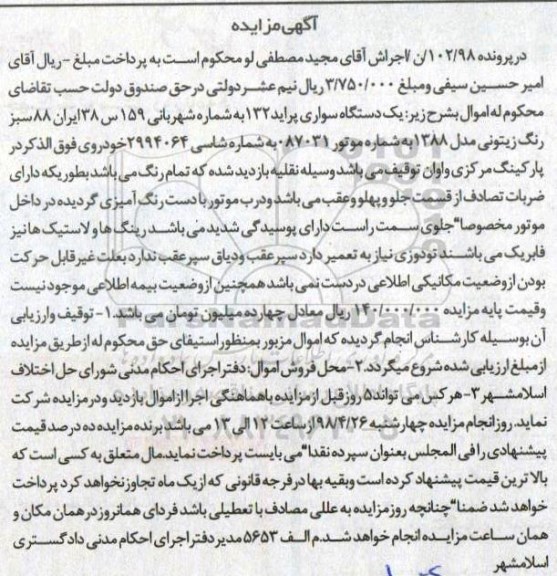 آگهی مزایده
در پرونده ۱۰۲/۹۸/ن/اجراش آقای مجید مصطفی لو محکوم است به پرداخت مبلغ -ریال آقای
امیر حسین سیفی ومبلغ ۳/۷۵۰/۰۰۰ ریال نیم عشر دولتی در حق صندوق دولت حسب تقاضای
محکوم له اموال بشرح زیر: یک دستگاه سواری پراید ۱۳۲ به شماره شهربانی ۱۵۹ س ۳۸ ایران ۸۸ سبز
رنگ زیتونی مدل ۱۳۸۸ به شماره موتور ۰۸۷۰۳۱ به شماره شاسی ۲۹۹۴۰۶۴ خودروی فوق الذکر در
پارکینگ مرکزی واوان توقیف می باشد وسیله نقلیه بازدید شده که تمام رنگ می باشد بطوریکه دارای
ضربات تصادف از قسمت جلو و پهلو وعقب می باشد ودرب موتور با دست رنگ آمیزی گردیده در داخل
موتور مخصوصا" جلوی سمت راست دارای پوسیدگی شدید می باشد رینگ ها و لاستیک ها نیز
فابریک می باشند تودوزی نیاز به تعمیر دارد سپر عقب ودیاق سپر عقب ندارد بعلت غیر قابل حرکت
بودن از وضعیت مکانیکی اطلاعی در دست نمی باشد همچنین از وضعیت بیمه اطلاعی موجود نیست
وقیمت پایه مزایده ۱۴۰/۰۰۰/۰۰۰ ریال معادل چهارده میلیون تومان می باشد. ۱- توقیف وارزیابی
آن بوسیله کارشناس انجام گردیده که اموال مزبور بمنظور استیفای حق محکوم له از طریق مزایده
از مبلغ ارزیابی شده شروع میگردد. ۲-محل فروش اموال: دفتر اجرای احکام مدنی شورای حل اختلاف
اسلامشهر ۳- هر کس می تواند ۵ روز قبل از مزایده با هماهنگی اجرا از اموال بازدید و در مزایده شرکت
نماید. روز انجام مزایده چهارشنبه ۹۸/۴/۲۶ از ساعت ۱۲ الی ۱۳ می باشد برنده مزایده ده درصد قیمت
پیشنهادی را فی المجلس بعنوان سپرده نقدا" می بایست پرداخت نماید.مال متعلق به کسی است که
بالاترین قیمت پیشنهاد کرده است وبقیه بها در فرجه قانونی که از یک ماه تجاوز نخواهد کرد پرداخت
خواهد شد ضمنا" چنانچه روز مزایده به عللی مصادف با تعطیلی باشد فردای همانروز در همان مکان و
همان ساعت مزایده انجام خواهد شد.م الف ۵۶۵۳ مدیر دفتر اجرای احکام مدنی دادگستری
اسلامشهر